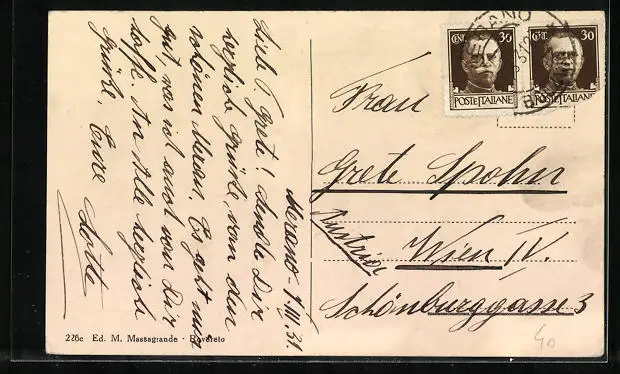 Merano - 7.III.31.
Liebe T. Grete! Sende Dir
herzliche Grüße, von dem
schönen Meran. Es geht mir
gut, was ich auch von Dir
hoffe. An Alle herzliche
Grüße, Eure Lotte
CENT. 30
POSTE ITALIANE
CENT. 30
POSTE ITALIANE
MERANO
Frau
Grete Spohn
Wien IV.
Austria
Schönburggasse 3
40
226c Ed. M. Massagrande - Rovereto